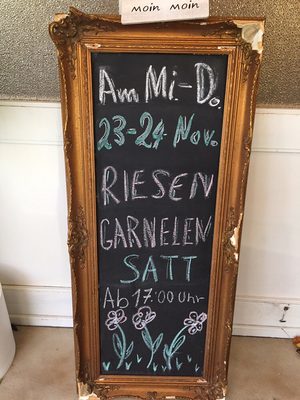 moin moin
Am Mi-Do.
23-24 Nov.
RIESEN
GARNELEN
SATT
Ab 17:00 Uhr